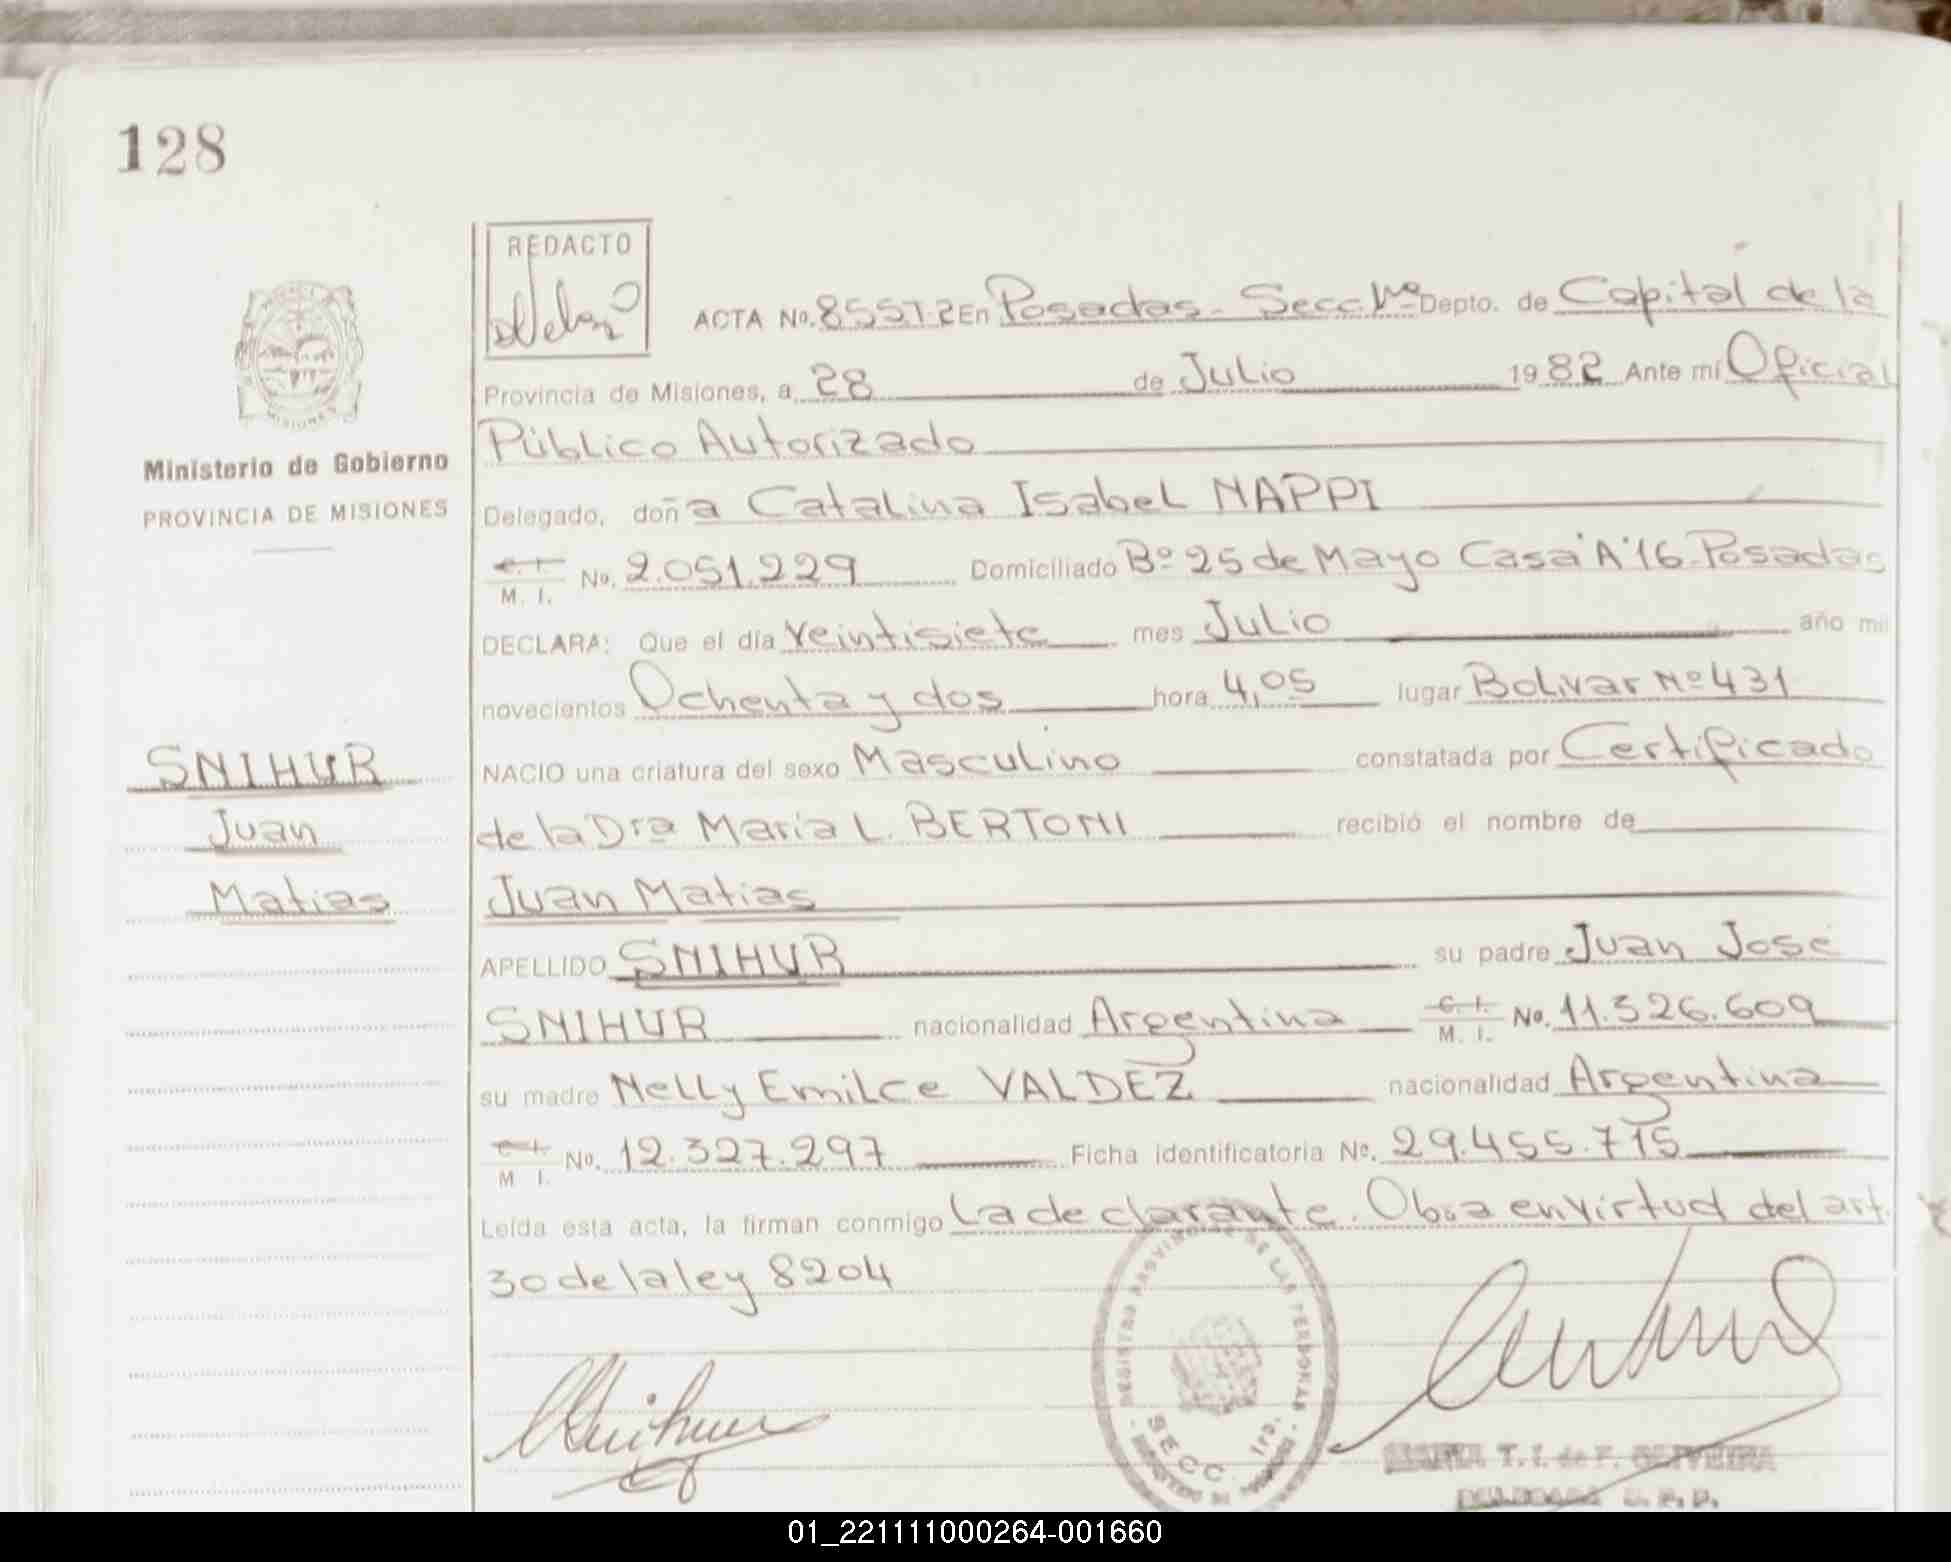 128
REDACTO
ACTA No. 855T2 En Posadas - Secc. 1ra Depto. de Capital de la
Provincia de Misiones, a 28 de Julio 1982 Ante mi Oficial
Público Autorizado
Ministerio de Gobierno
PROVINCIA DE MISIONES
Delegado, doña Catalina Isabel NAPPI
C. I.
M. I. No. 2.051.229 Domiciliado Bº 25 de Mayo Casa "A" 16 - Posadas
DECLARA: Que el día veintisiete mes Julio año mil
novecientos Ochenta y dos hora 4,05 lugar Bolivar Nº 431
SNIHUR
NACIO una criatura del sexo Masculino constatada por Certificado
Juan
de la Dra Maria L. BERTONI recibió el nombre de
Matias
Juan Matias
APELLIDO SNIHUR su padre Juan José
SNIHUR nacionalidad Argentina C. I. M. I. No. 11.326.609
su madre Nelly Emilce VALDEZ nacionalidad Argentina
C. I.
M I. No. 12.327.297 Ficha identificatoria No. 29.455.715
Leída esta acta, la firman conmigo La declarante. Obra en virtud del art.
30 de la ley 8204
REGISTRO PROVINCIAL DE LAS PERSONAS
SECC. 1ra.
T. I. de F. OLIVEIRA
01_221111000264-001660